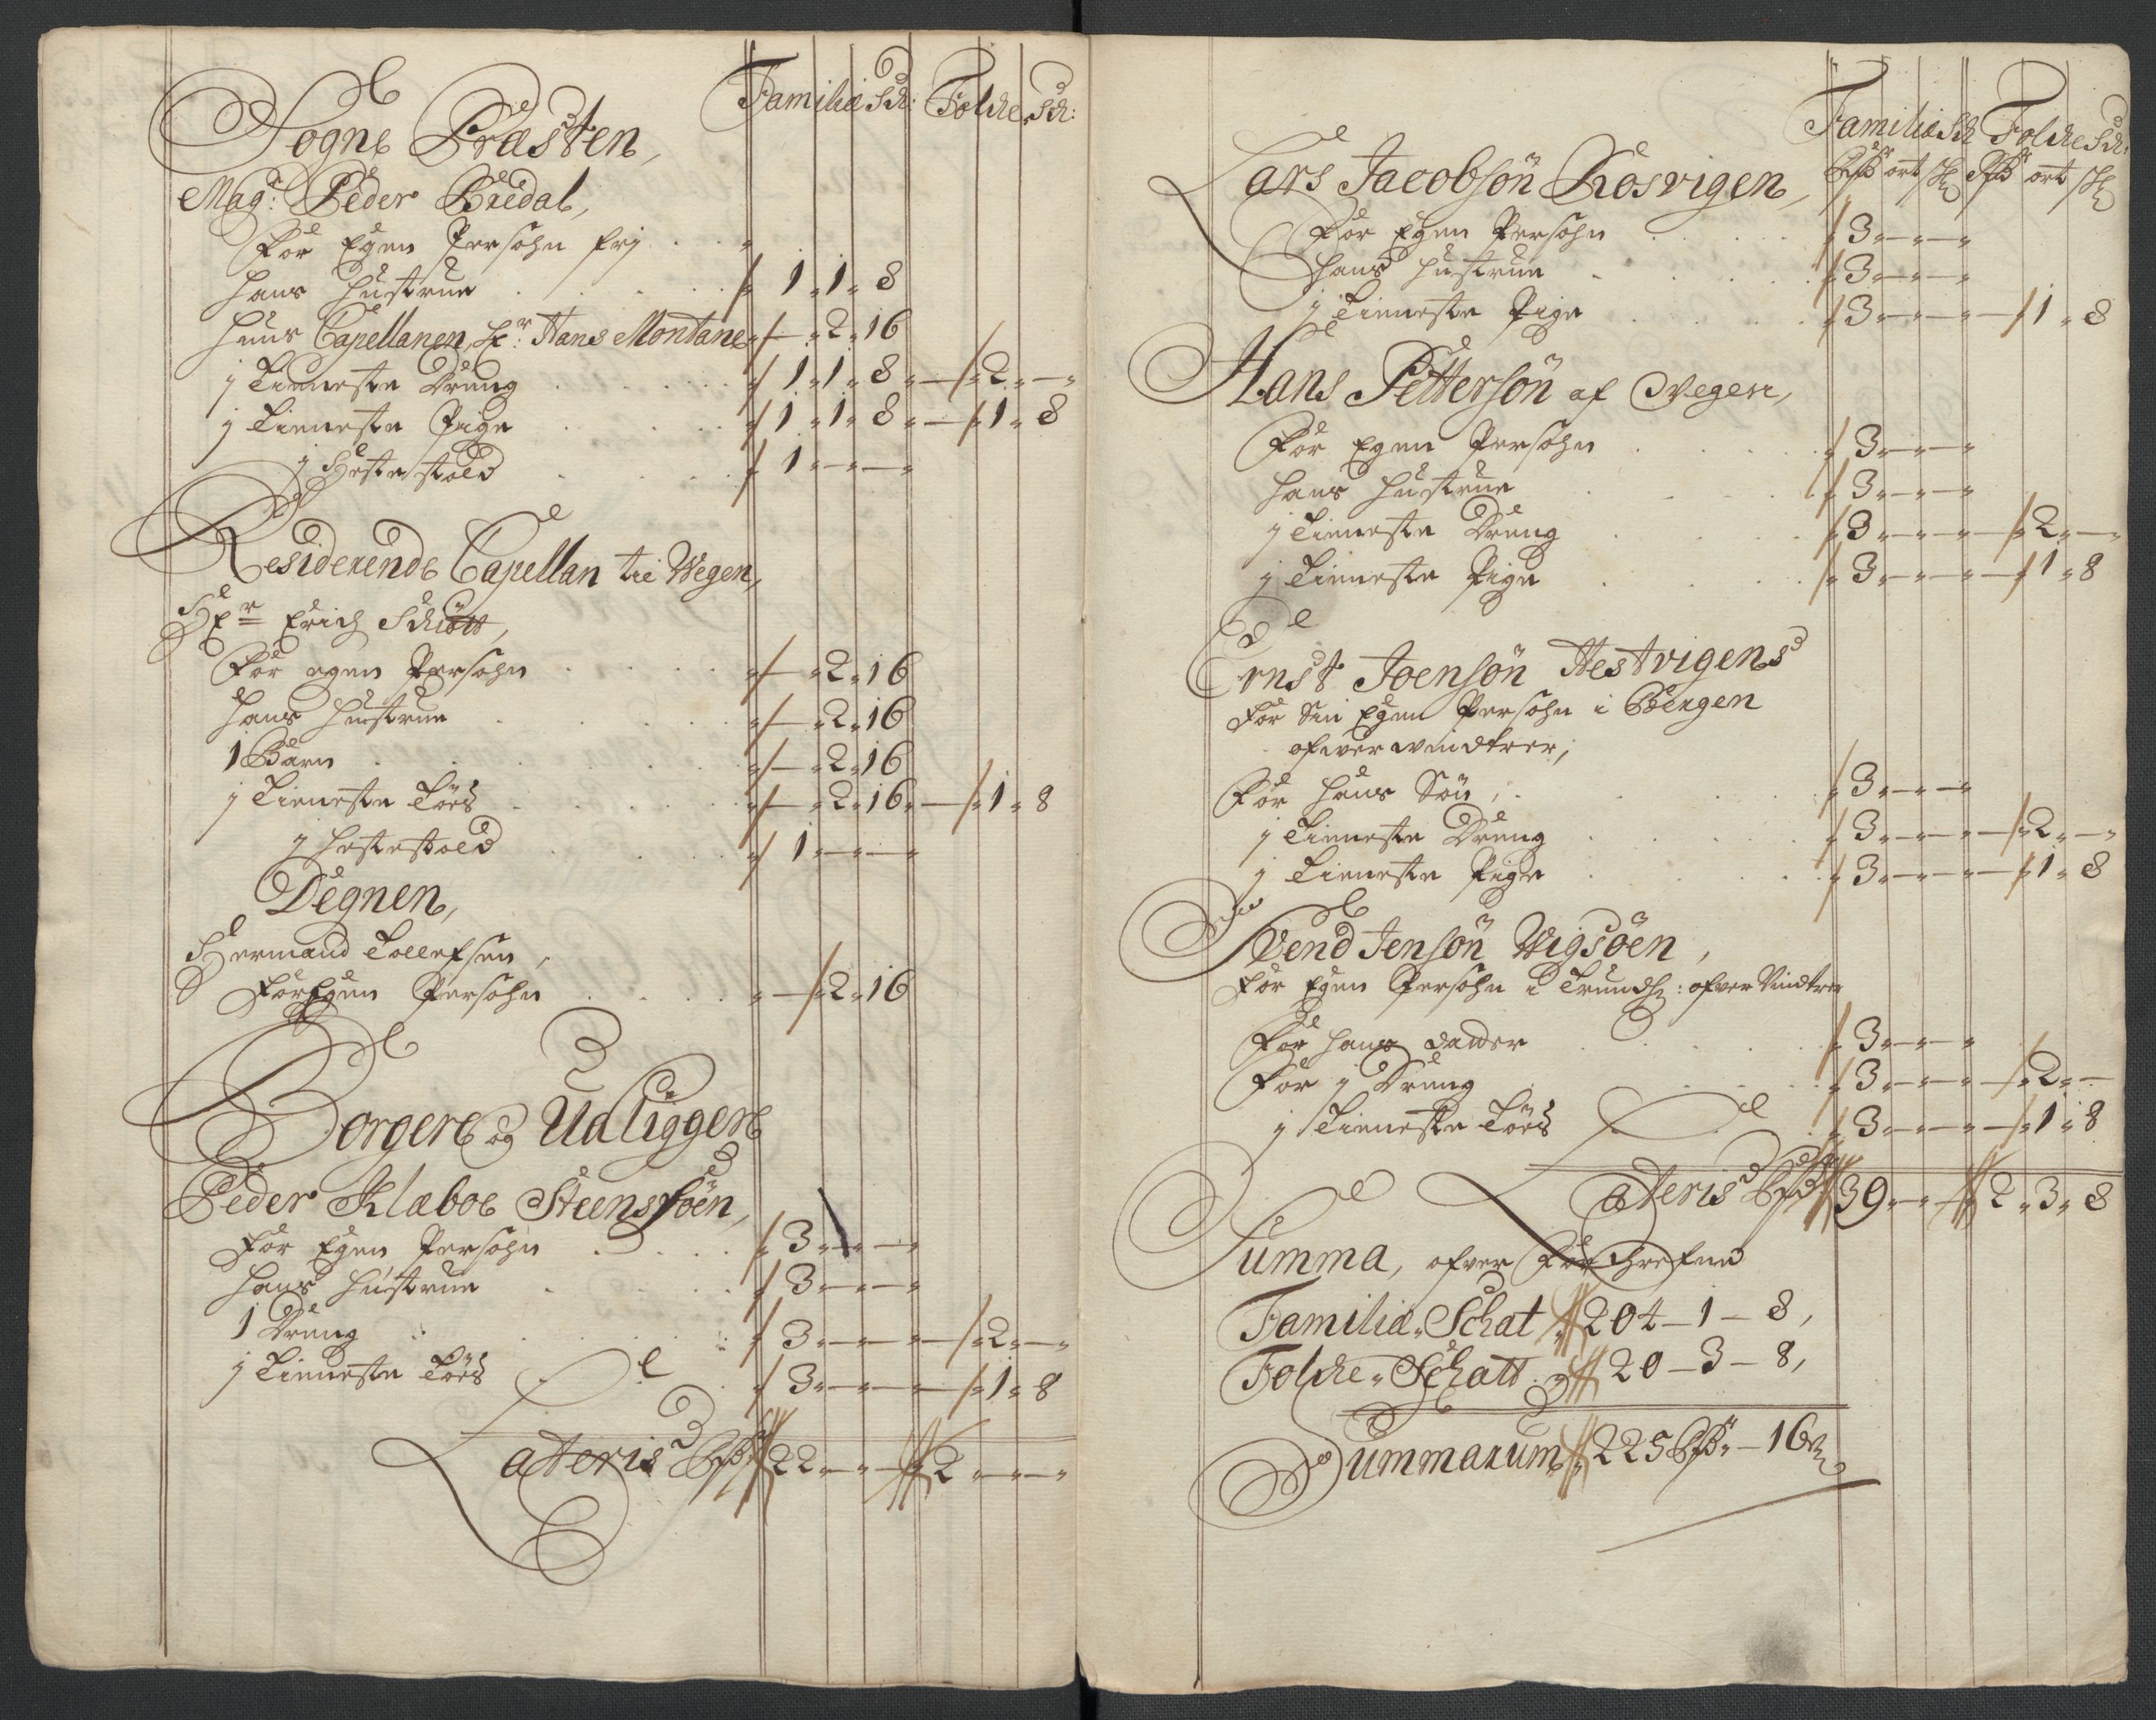 Familiæ Sch: Folche Sch:
Sogne Præsten,
Mag: Peder Bredal,
For Egen Persohn frj
hans Hustrue 1 1 8
hans Capellanen, Hr: Hans Montane — 2 16
j Tieneste Dreng 1 1 8 — 2 —
j Tieneste Pige 1 1 8 — 1 8
j Heste skoed 1 — —
Residerende Capellan til Wegen,
Hr Erich Schiøtt,
For egen Persohn — 2 16
hans Hustrue — 2 16
1 Barn — 2 16
j Tieneste Tøes — 2 16 — 1 8
j heste skoed 1 — —
Degnen,
Hermand Tollefsen,
For Egen Persohn — 2 16
Borgere og Udliggere
Peder Klæboe Steensøen,
For Egen Persohn 3 — —
hans Hustrue 3 — —
1 Dreng 3 — — — 2 —
j Tieneste Tøes 3 — — — 1 8
Lateris Rdr 22 — — 2 — —
Familiæ Sch Folche Sch:
Rdr ort sk Rdr ort sk
Lars Jacobsøn Rosvigen,
For Egen Persohn 3 — —
Hans Hustrue 3 — —
j Tieneste Pige 3 — — — 1 8
Hans Pettersøn af Wegen,
For Egen Persohn 3 — —
hans Hustrue 3 — —
j Tieneste Dreng 3 — — — 2 —
j Tieneste Pige 3 — — — 1 8
Ernst Joensøn Hestvigens
For Sin Egen Persohn i Bergen
ofwerwindtrer,
For hans Søn, 3 — —
j Tieneste Dreng 3 — — — 2 —
j Tieneste Pige 3 — — — 1 8
Svend Jensøn Wigsøen,
For Egen Persohn i Trundh: ofver Vindtrer
For hans datter 3 — —
For j Dreng 3 — — — 2 —
j Tieneste Tøes 3 — — — 1 8
Lateris Rdr 39 — — 2 3 8
Summa, ofver For Schrefne
Familiæ Schat 204 — 1 — 8,
Folche Schatt 20 — 3 — 8,
Summarum 225 Rdr — 16 sk